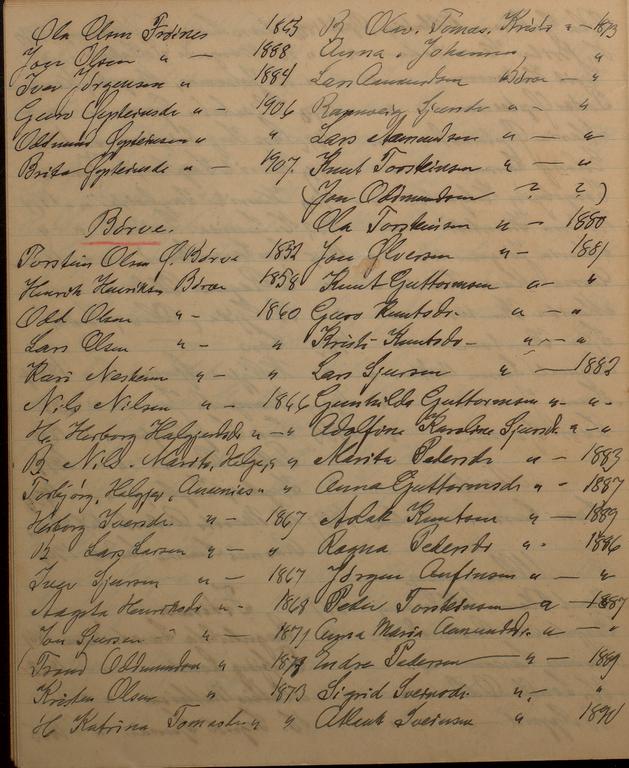 Ola Olsen Frönes 1863
Jon Olsen " — 1888
Iver Jörgensen " 1884
Guro Gjpleinsdr " — 1906
Oddmund Gjpleinsen " "
Brita Gjpleinsdr " — 1907.
Börve.
Torstein Olsen Ö. Börve 1852
Henrik Henriksen Börve 1858
Odd Olsen " - 1860
Lars Olsen " - "
Kari Nesheim " — "
Nils Nilsen " - 1866
H. Herborg Halgjertsdr " — "
B Nils. Marita, Helge, " "
Torbjörg, Helgje, "
Herborg Iversdr. " — 1867
Lars Larsen " — "
Iver Sjursen " — 1867
Aagata Henriksdr " - 1868
Jon Sjursen " — 1871
(Trond Oddmundsen "
Kristen Olsen " 1873
H Katrina Tomasdr " "
B Olav. Tomas. Kristi " — 1873
Anna, Johannes, "
Lars Aamundsen Börve — "
Ragnveig Sjursdr " — "
Lars Aamundsen " — "
Knut Torsteinson " — "
(Jon Oddmundsen ? ?)
Ola Torsteinsen " — 1880
Jon Ölversen " — 1881
Knut Guttormsen " — "
Guro Knutsdr. " — "
Kristi Knutsdr — " — "
Lars Sjursen " — 1882
Gunhilda Guttormsen " - " -
Adolfine Karoline Sjursdr. " — "
Marita Pedersdr " — 1883
Anna Guttormsdr " - 1887
Aslak Knutson " — 1889
Ragna Pedersdr " - 1886
Jörgen Anfinsen " — "
Peter Torsteinson " — 1887
Anna Maria Aamundsdr. " — "
Endre Pedersen " — 1889
Sigrid Sveinsdr. " - "
Sveinsen " 1890